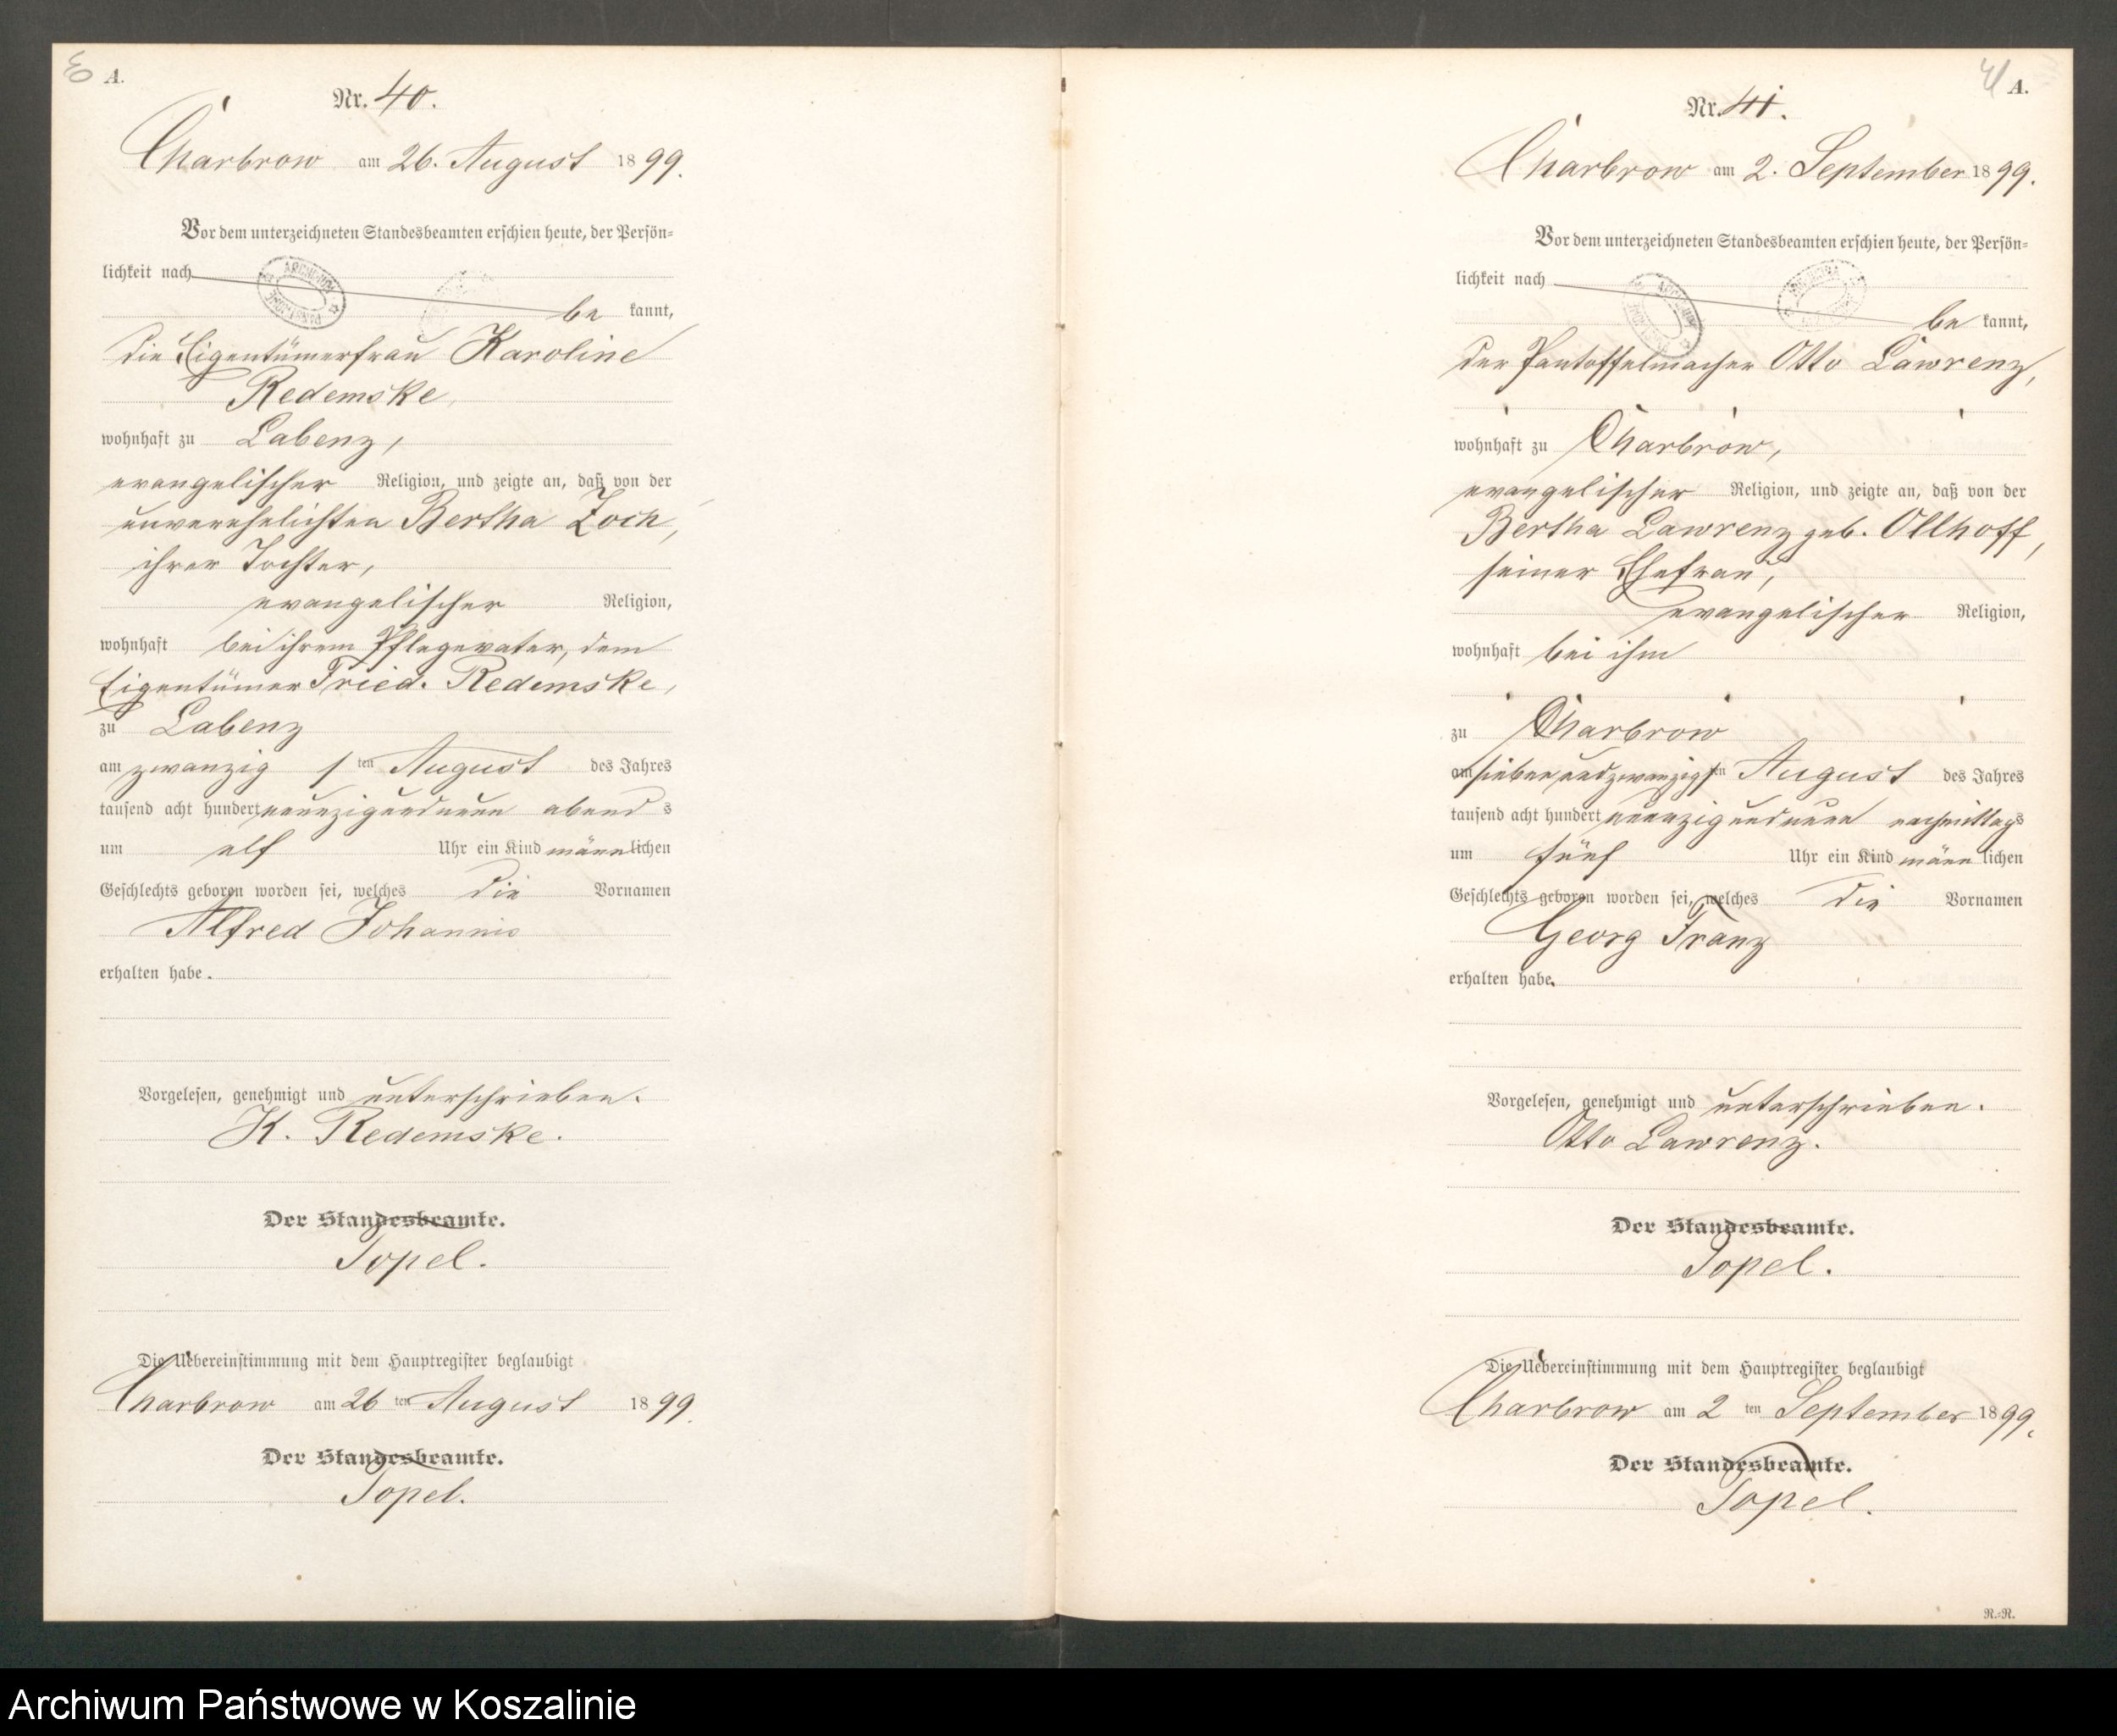 A.
Nr. 40.
Charbrow am 26. August 1899.
Vor dem unterzeichneten Standesbeamten erschien heute, der Persön-
lichkeit nach
be kannt,
die Eigentümerfrau Karoline
Redemske,
wohnhaft zu Labenz,
evangelischer Religion, und zeigte an, daß von der
unverehelichten Bertha Zoch,
ihrer Tochter,
evangelischer Religion,
wohnhaft bei ihrem Pflegevater, dem
Eigentümer Fried. Redemske,
zu Labenz
am zwanzig sten August des Jahres
tausend acht hundert neunzigundneun abends
um elf Uhr ein Kind männlichen
Geschlechts geboren worden sei, welches die Vornamen
Alfred Johannis
erhalten habe.
Vorgelesen, genehmigt und unterschrieben.
K. Redemske.
Der Standesbeamte.
Topel.
Die Uebereinstimmung mit dem Hauptregister beglaubigt
Charbrow am 26 ten August 1899.
Der Standesbeamte.
Topel.
41 A.
Nr. 41.
Charbrow am 2. September 1899.
Vor dem unterzeichneten Standesbeamten erschien heute, der Persön-
lichkeit nach
be kannt,
der Pantoffelmacher Otto Lawrenz,
wohnhaft zu Charbrow,
evangelischer Religion, und zeigte an, daß von der
Bertha Lawrenz geb. Ollhoff,
seiner Ehefrau,
evangelischer Religion,
wohnhaft bei ihm
zu Charbrow
am siebenundzwanzigsten August des Jahres
tausend acht hundert neunzigundneun nachmittags
um fünf Uhr ein Kind männlichen
Geschlechts geboren worden sei, welches die Vornamen
Georg Franz
erhalten habe.
Vorgelesen, genehmigt und unterschrieben.
Otto Lawrenz.
Der Standesbeamte.
Topel.
Die Uebereinstimmung mit dem Hauptregister beglaubigt
Charbrow am 2 ten September 1899.
Der Standesbeamte.
Topel.
R.=R.
Archiwum Państwowe w Koszalinie